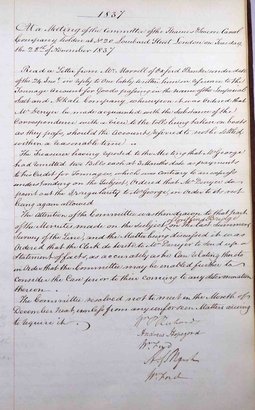 1837
At a Meeting of the Committee of the Thames & Severn Canal
Company holden at No 20 Lombard Street London on Tuesday
the 28th of November 1837.
Read a Letter from Mr. of Oxford Banker under date
of the 24 Inst. in reply to One lately written him in reference to the
Tonnage Account for Goods passing in the name of the Imperial
Salt and Alkali Company, whereupon it was Ordered that
Mr. Denyer be made acquainted with the substance of the
Correspondence with a view to the following Boats
as they pass, should the Accounts referred to not be settled
within a reasonable time.
The Treasurer having reported to the Meeting that Mr. George
had remitted two Bills each at 3 Months date as payment
to his Credit for Tonnages, which was contrary to an express
understanding on the Subject, Ordered that Mr. Denyer do
point out the Irregularity to Mr. George, in order to its not
being again allowed.
The attention of the Committee was then drawn to that part
of the Minutes made on the Subject of in the last Summer
Survey of the Line, and the Matter being discussed it was
Ordered that the Clerk do write to Mr. Denyer to send up a
statement of facts, as accurately as he Can relating thereto
in Order that the Committee may be enabled further to
consider the Case prior to their coming to any determination
thereon.
The Committee resolved not to meet in the Month of
December next, unless from any unforeseen Matters arising
to require it.
Andrew
Wm
Wm Ford